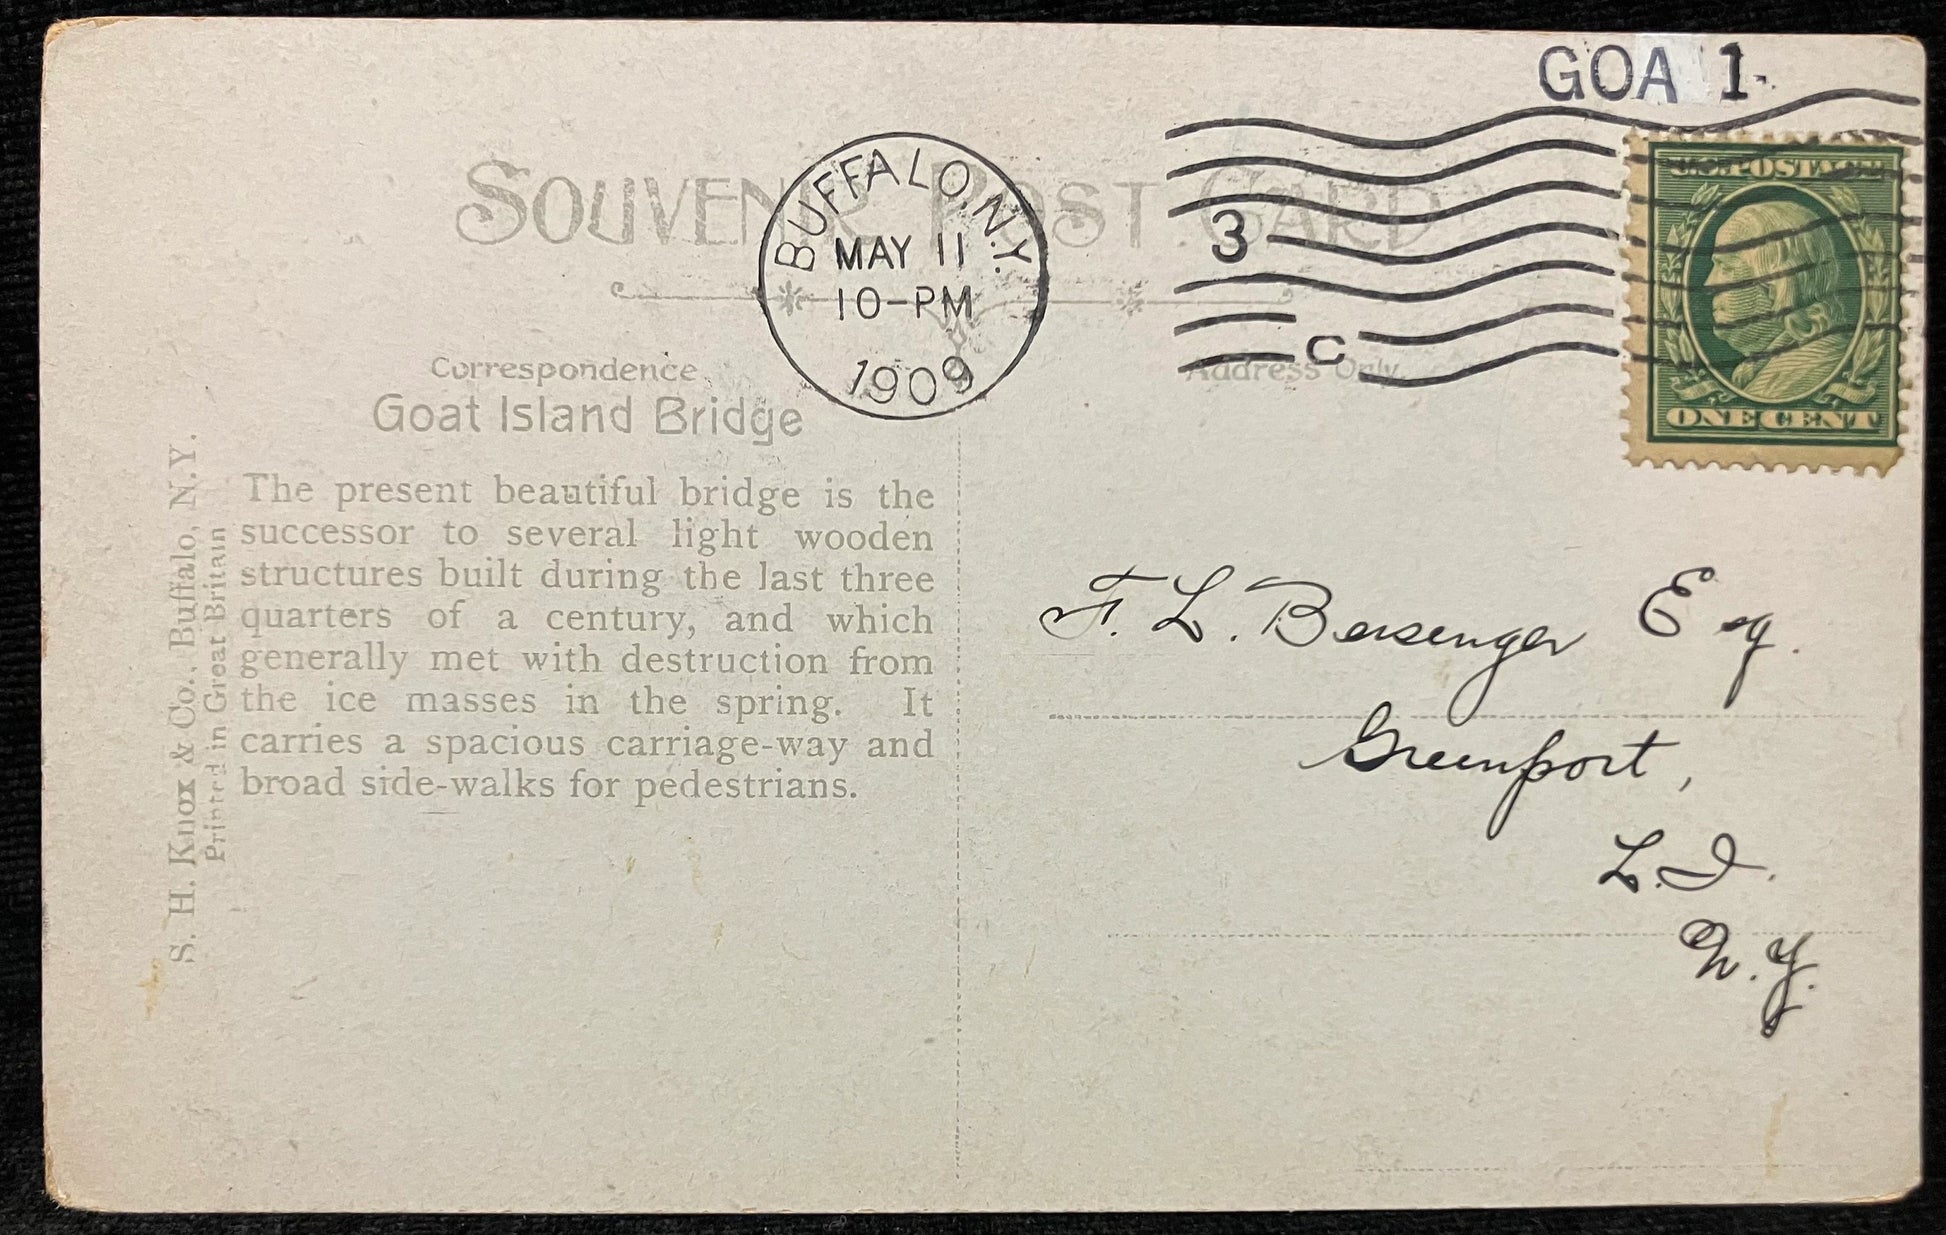 GOA 1
SOUVENIR POST CARD
BUFFALO, N.Y.
MAY 11
10-PM
1909
3
C
U.S. POSTAGE
ONE CENT
Correspondence
Address Only.
Goat Island Bridge
The present beautiful bridge is the
successor to several light wooden
structures built during the last three
quarters of a century, and which
generally met with destruction from
the ice masses in the spring. It
carries a spacious carriage-way and
broad side-walks for pedestrians.
S. H. Knox & Co., Buffalo, N.Y.
Printed in Great Britain
F. L. Bersenger Esq.
Greenport,
L.I.
N.Y.